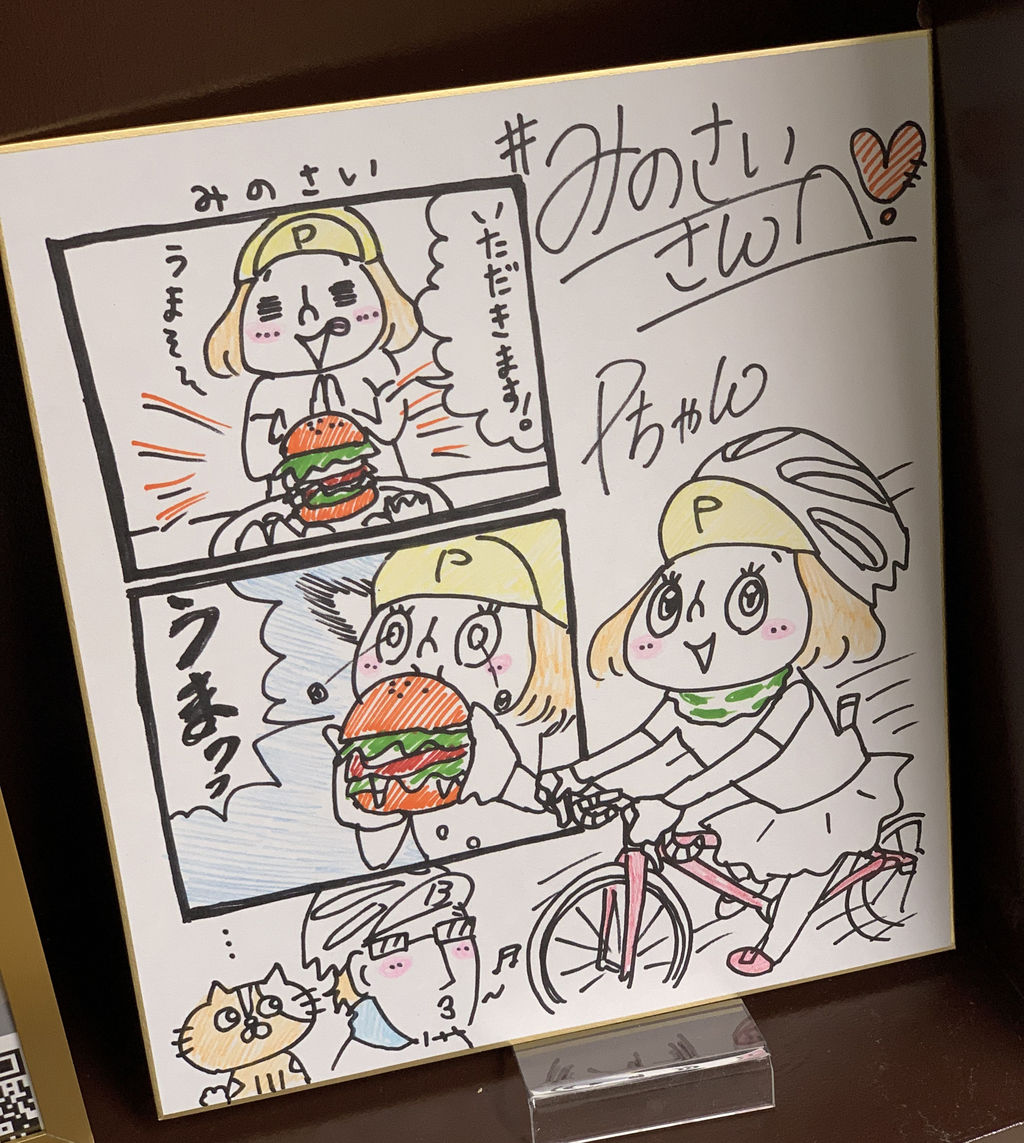 #みのさい
さんへ
みのさい
いただきます!
うまそ〜
P
Pちゃん
P
P
うまっっ
B